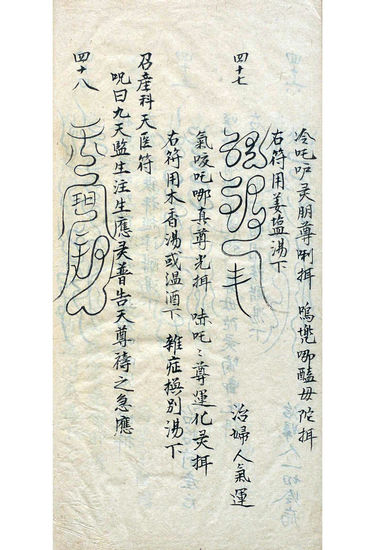 冷吒𠮷灵朋尊唎揖 鳴㘕哪醯毋陀揖
右符用姜塩湯下
四十七
治婦人氣運
氣咬吒哪真尊光揖 㖀吒ミ尊運化灵揖
右符用木香湯或温酒下 雜症模别湯下
召産科天医符
咒曰九天監生注生應灵普告天尊待之急應
四十八